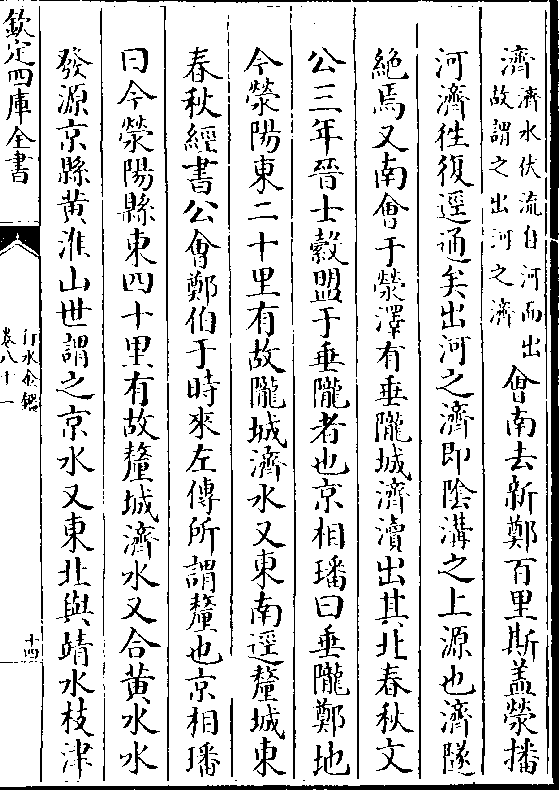 濟濟水伏流自河而出故謂之出河之濟會南去新鄭百里斯盖滎播
河濟徃復逕通矣出河之濟即陰溝之上源也濟隧
絶焉又南會于滎澤有垂隴城濟瀆出其北春秋文
公三年晉士縠盟于垂隴者也京相璠曰垂隴鄭地
今滎陽東二十里有故隴城濟水又東南逕釐城東
春秋經書公會鄭伯于時來左傳所謂釐也京相璠
曰今滎陽縣東四十里有故釐城濟水又合黄水水
發源京縣黄淮山世謂之京水又東北與靖水枝津
欽定四庫全書
行水金鑑
卷八十一
十四